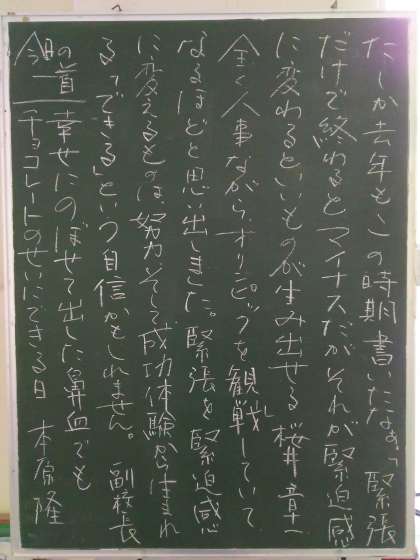 たしか去年もこの時期書いたなぁ「緊張
だけで終わるとマイナスだがそれが緊迫感
に変わるといいものが生み出せる桜井章一
全く人事ながら、オリンピックを観戦していて
なるほどと思い出しました。緊張を緊迫感
に変えるものは努力そして成功体験から生まれ
る「できる」という自信かもしれません。 副校長
今日の一首 幸せにのぼせて出した鼻血でも
チョコレートのせいにできる日 本原隆